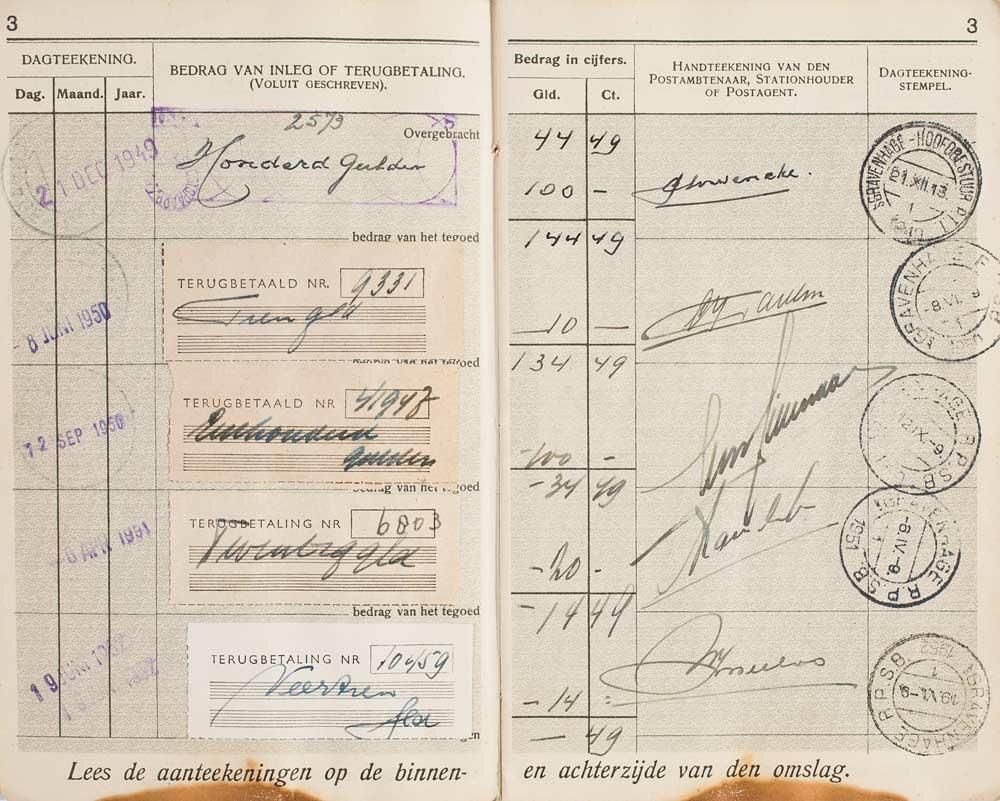 3
DAGTEEKENING.
Dag. Maand. Jaar.
BEDRAG VAN INLEG OF TERUGBETALING.
(VOLUIT GESCHREVEN).
2573
Overgebracht
21 DEC 1949
Honderd Gulden
bedrag van het tegoed
TERUGBETAALD NR. 9331
Tien gld
- 8 JUNI 1950
bedrag van het tegoed
TERUGBETAALD NR 41947
Eenhonderd
gulden
12 SEP 1950
bedrag van het tegoed
TERUGBETALING NR 6803
Twintig gld
- 6 APR 1951
bedrag van het tegoed
TERUGBETALING NR 10459
Veertien
gld
19 JUNI 1952
Lees de aanteekeningen op de binnen-
3
Bedrag in cijfers.
Gld. Ct.
HANDTEEKENING VAN DEN
POSTAMBTENAAR, STATIONHOUDER
OF POSTAGENT.
DAGTEEKENING-
STEMPEL.
44 49
100 -
'SGRAVENHAGE - HOOFDBESTUUR P.T.T.
21.XII.13.
1
1949
144 49
10 —
'SGRAVENHAGE
8.VI.-9
1
134 49
100 -
R.P.S.B.
12.IX.-9
-34 49
-20 -
'SGRAVENHAGE R.P.S.B. 1951
-6.IV.-9.
1
-14 49
-14 =
'SGRAVENHAGE R.P.S.B. 1952
19.VI.-9
1
— 49
en achterzijde van den omslag.